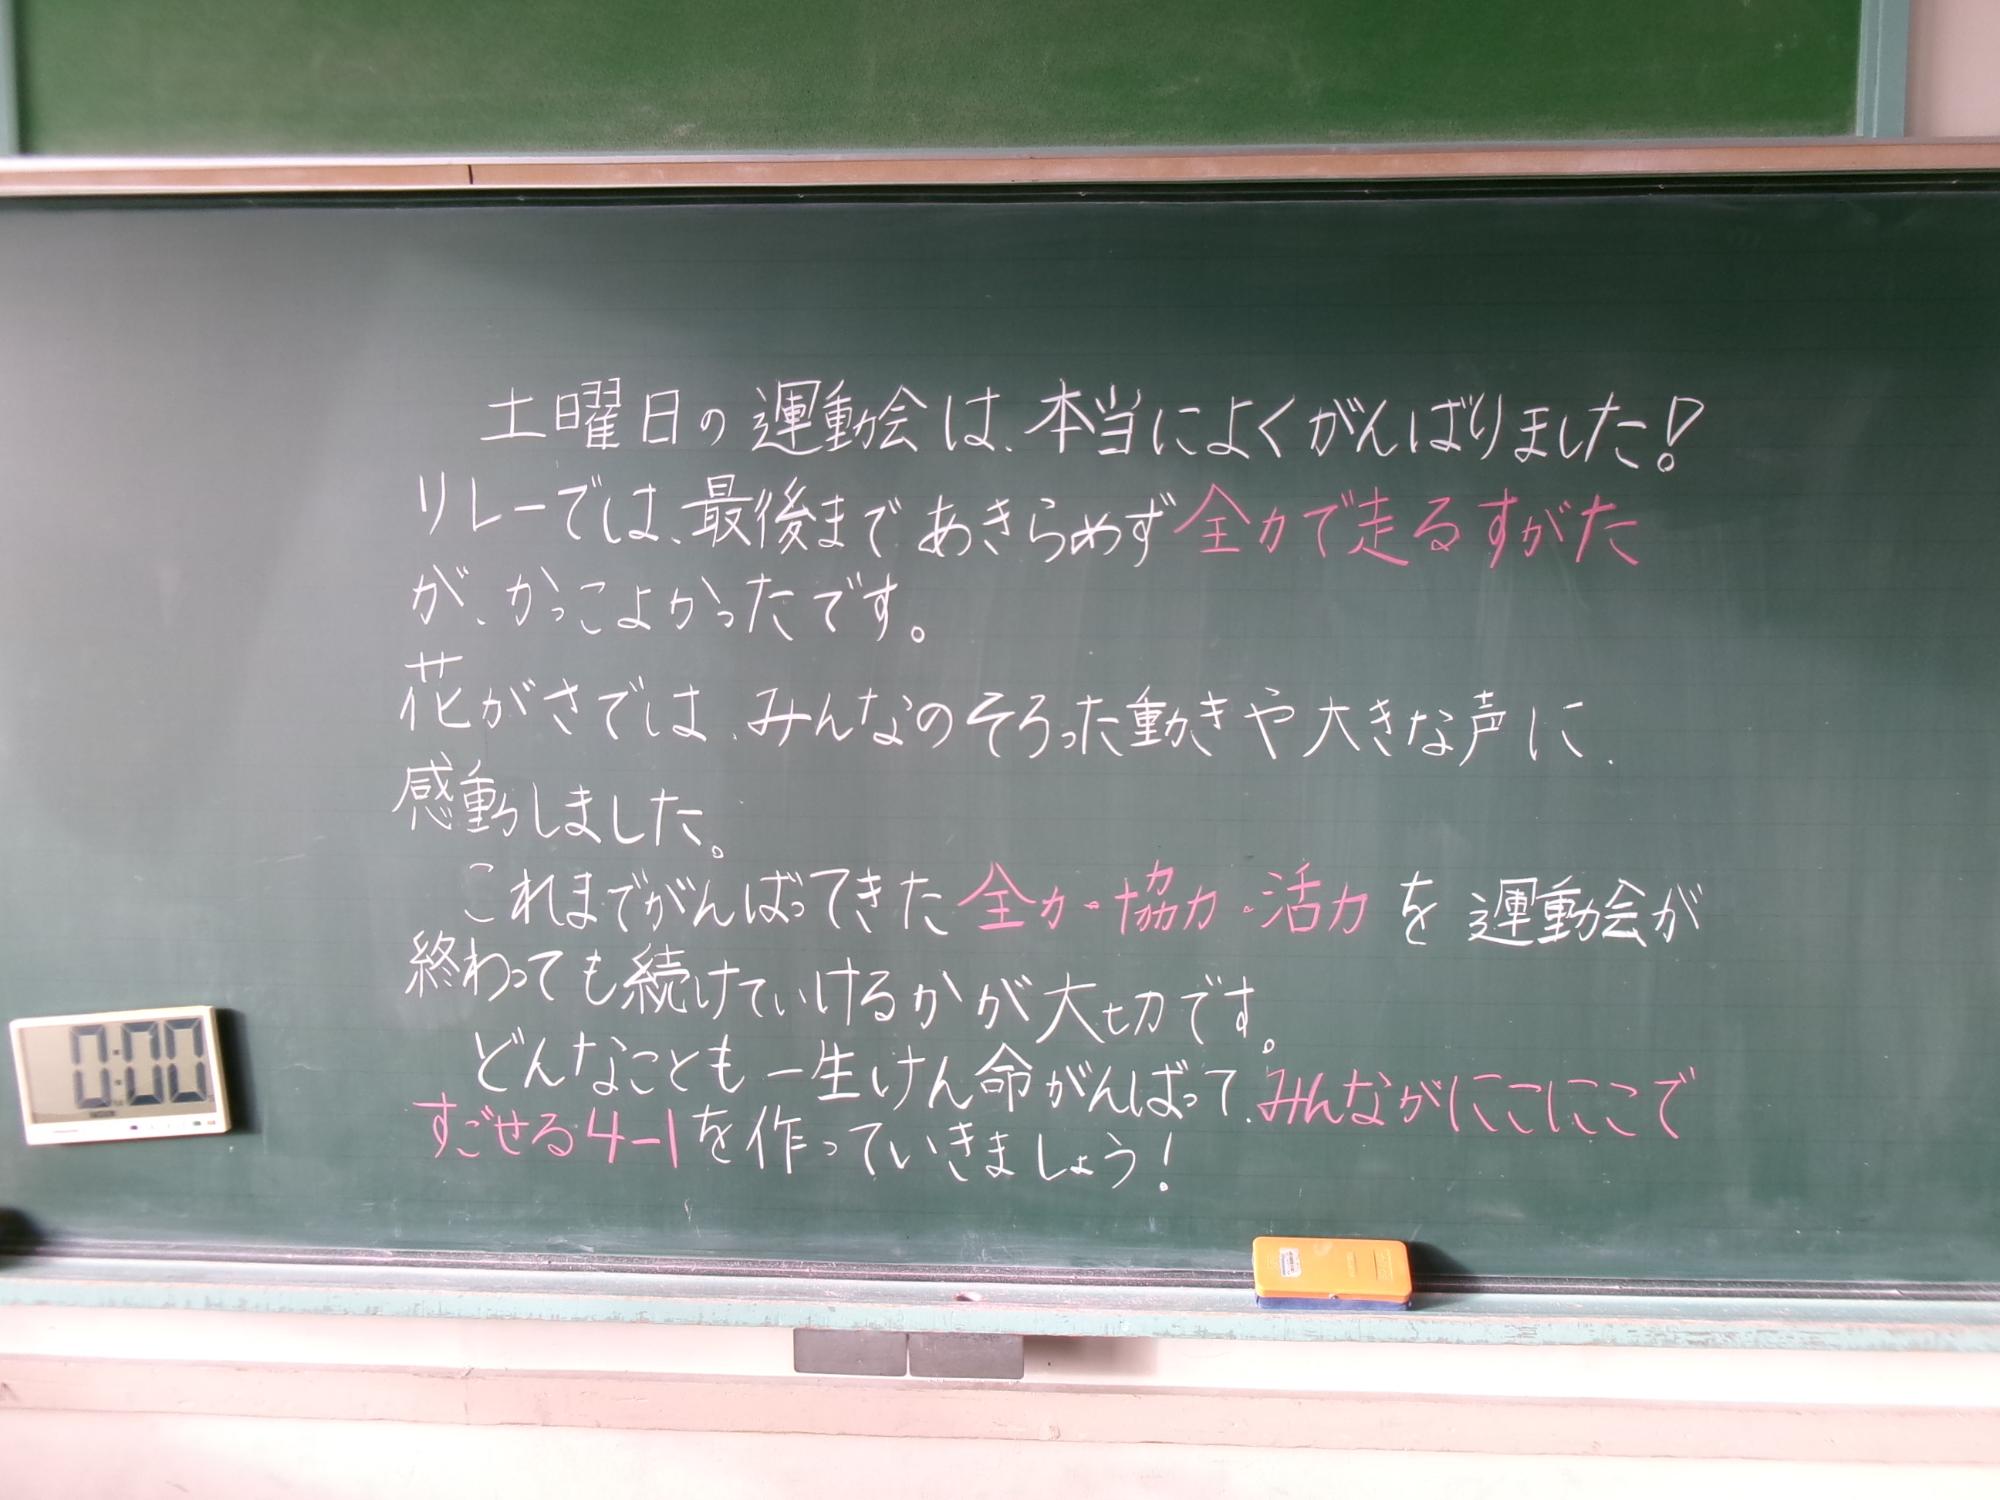 土曜日の運動会は、本当によくがんばりました!
リレーでは、最後まであきらめず全力で走るすがた
が、かっこよかったです。
花がさでは、みんなのそろった動きや大きな声に、
感動しました。
これまでがんばってきた全力・協力・活力を運動会が
終わっても続けていけるかが大切です。
どんなことも一生けん命がんばって、みんながにこにこで
すごせる4-1を作っていきましょう!
0:00